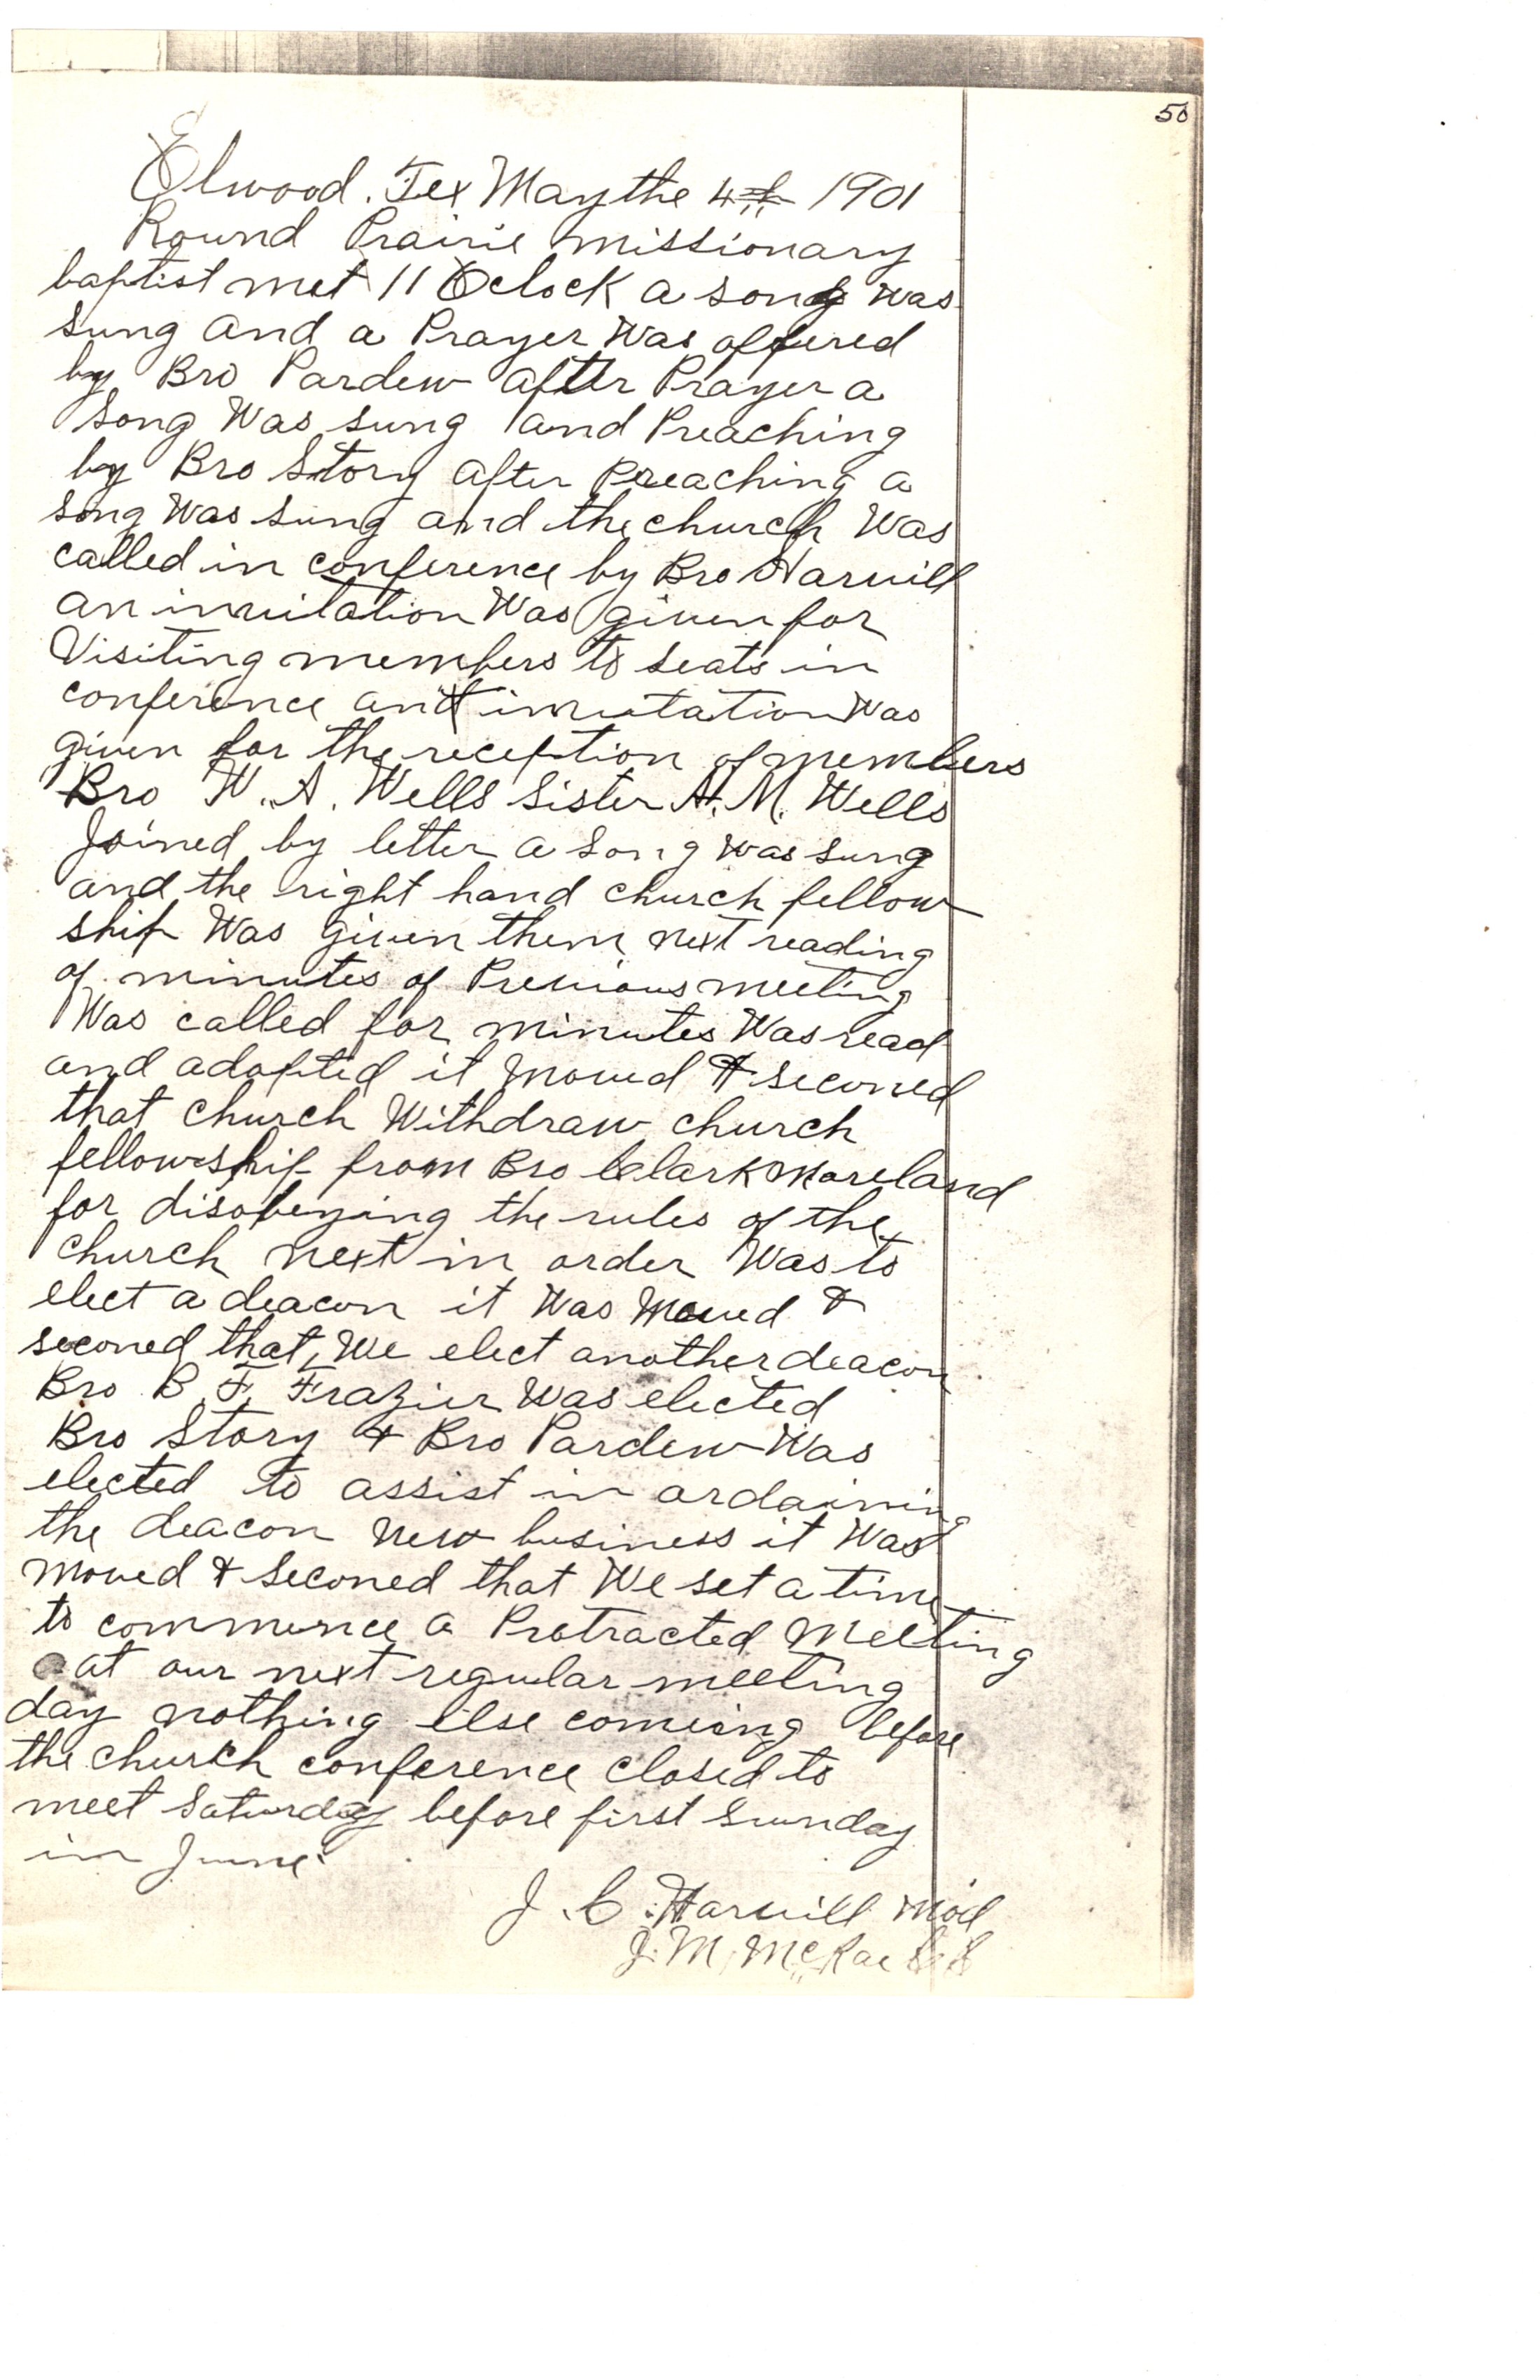 50
Elwood. Tex May the 4th 1901
Round Prairie missionary
baptist met 11 Oclock a song was
sung and a Prayer Was offered
by Bro Pardew after Prayer a
song Was sung and Preaching
by Bro Story after Preaching a
song Was sung and the church Was
called in conference by Bro Harvill
an invitation Was given for
Visiting members to seats in
conference and invitation Was
given for the reception of members
Bro W. A. Wells Sister A. M. Wells
Joined by letter a song was sung
and the right hand church fellow
ship Was given them next reading
of minutes of Previous meeting
Was called for minutes Was read
and adopted it moved & seconed
that church Withdraw church
fellowship from Bro Clark Moreland
for disobeying the rules of the
church next in order Was to
elect a deacon it Was moved &
seconed that, We elect another deacon
Bro B. F. Frazier Was elected
Bro Story & Bro Pardew Was
elected to assist in ordaining
the deacon new business it Was
moved & seconed that We set a time
to commence a Protracted Meeting
at our next regular meeting
day nothing else comeing before
the church conference closed to
meet Saturday before first Sunday
in June
J. C. Harvill Mod
J. M. McRae